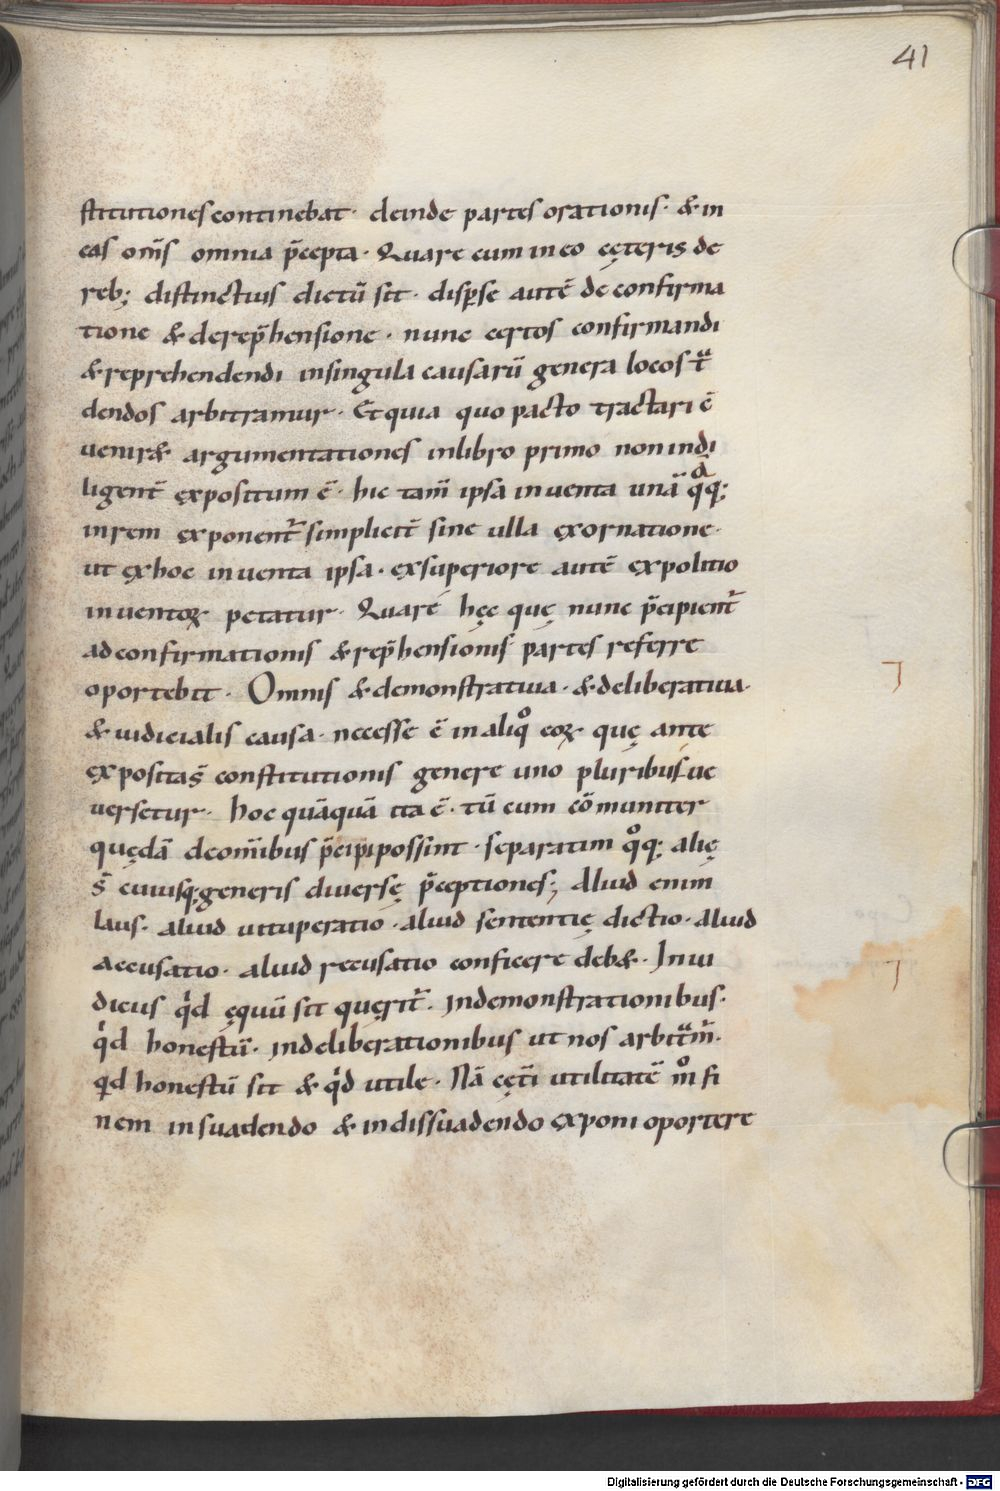 41
stitutiones continebat· deinde partes orationis· & in
eas om̅s omnia p̅cepta· Quare cum in eo cęteris de
reb; distinctius dictū sit· disp̲se autē de confirma
tione & de rep̅hensione· nunc certos confirmandi
& reprehendendi in singula causarū genera locos tͣ
dendos arbitramur· Et quia quo pacto tractari c̅
venir& argumentationes in libro primo non indi
ligent̅ ęxpositum ē· hic tam̅ ipsa inventa unā qͣq;
in rem ęxponent᷑ simplicit̅ sine ulla ęxornatione·
ut ęx hoc inventa ipsa· ęx superiore autē ęxpolitio
inventoꝝ petatur· Quare hęc quę nunc p̅cipient᷑
ad confirmationis & rep̅hensionis partes referre
oportebit· Omnis & demonstrativa· & deliberativa·
& iudicialis causa· necesse ē in aliqͦ eoꝝ quę ante
ęxposita s̅ constitutionis genere uno pluribus ue
versetur· hoc quāquā ita ē· tū cum cōmuniter
quędā de om̅ibus p̅cipi possint· separatim qͦq; alię
s̅ cuiusq; generis diversę p̅ceptiones; Aliud enim
laus· aliud vituperatio· aliud sententię dictio· aliud
accusatio· aliud recusatio conficere deb&· In iu
dicus qͥd ęquū sit quęrit᷑· in demonstrationibus·
qͥd honestū· in deliberationibus ut nos arbitͣm᷑·
qͥd honestū sit & qͥd utile· Nā cęt̅i utilitatē mͦ fi
nem in suadendo & in dissuadendo ęxponi oportere
Digitalisierung gefördert durch die Deutsche Forschungsgemeinschaft - DFG